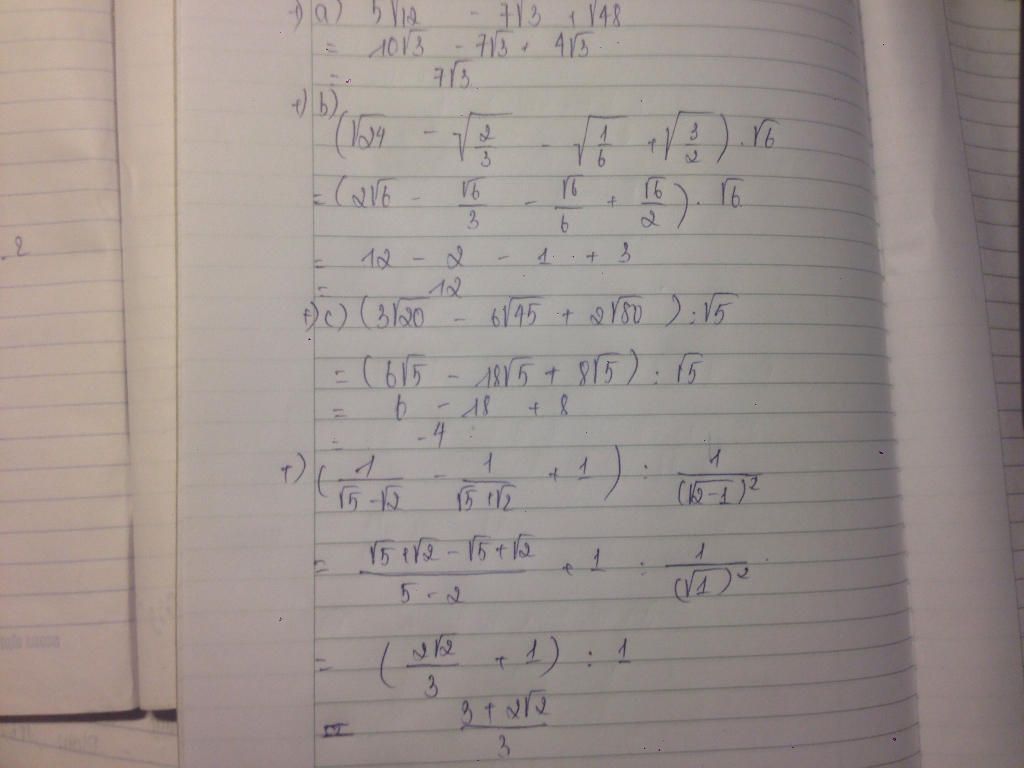 a) 5√12 - 7√3 + √48
= 10√3 - 7√3 + 4√3
= 7√3
b)
(√24 - √(2/3) - √(1/6) + √(3/2)) . √6
= (2√6 - √6/3 - √6/6 + √6/2) . √6
= 12 - 2 - 1 + 3
= 12
c) (3√20 - 6√45 + 2√80) : √5
= (6√5 - 18√5 + 8√5) : √5
= 6 - 18 + 8
= -4
(1/(√5 - √2) - 1/(√5 + √2) + 1) : 1/(√2-1)²
= (√5 + √2 - √5 + √2)/(5 - 2) + 1 : 1/(√1)²
= (2√2/3 + 1) : 1
= (3 + 2√2)/3